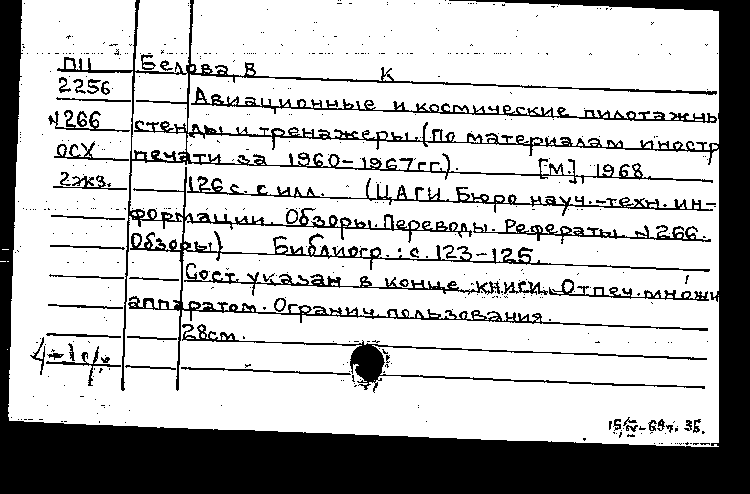 П11 Белова, В К
2256 Авиационные и космические пилотажны
N266 стенды и тренажеры. (По материалам иностр
ОСХ печати за 1960-1967гг.). [М.], 1968.
2экз. 126 с. с илл. (ЦАГИ. Бюро науч.-техн. ин-
формации. Обзоры. Переводы. Рефераты. N266.
Обзоры) Библиогр.: с. 123-125.
Сост. указан в конце книги. Отпеч. множи
аппаратом. Огранич. пользования.
28см.